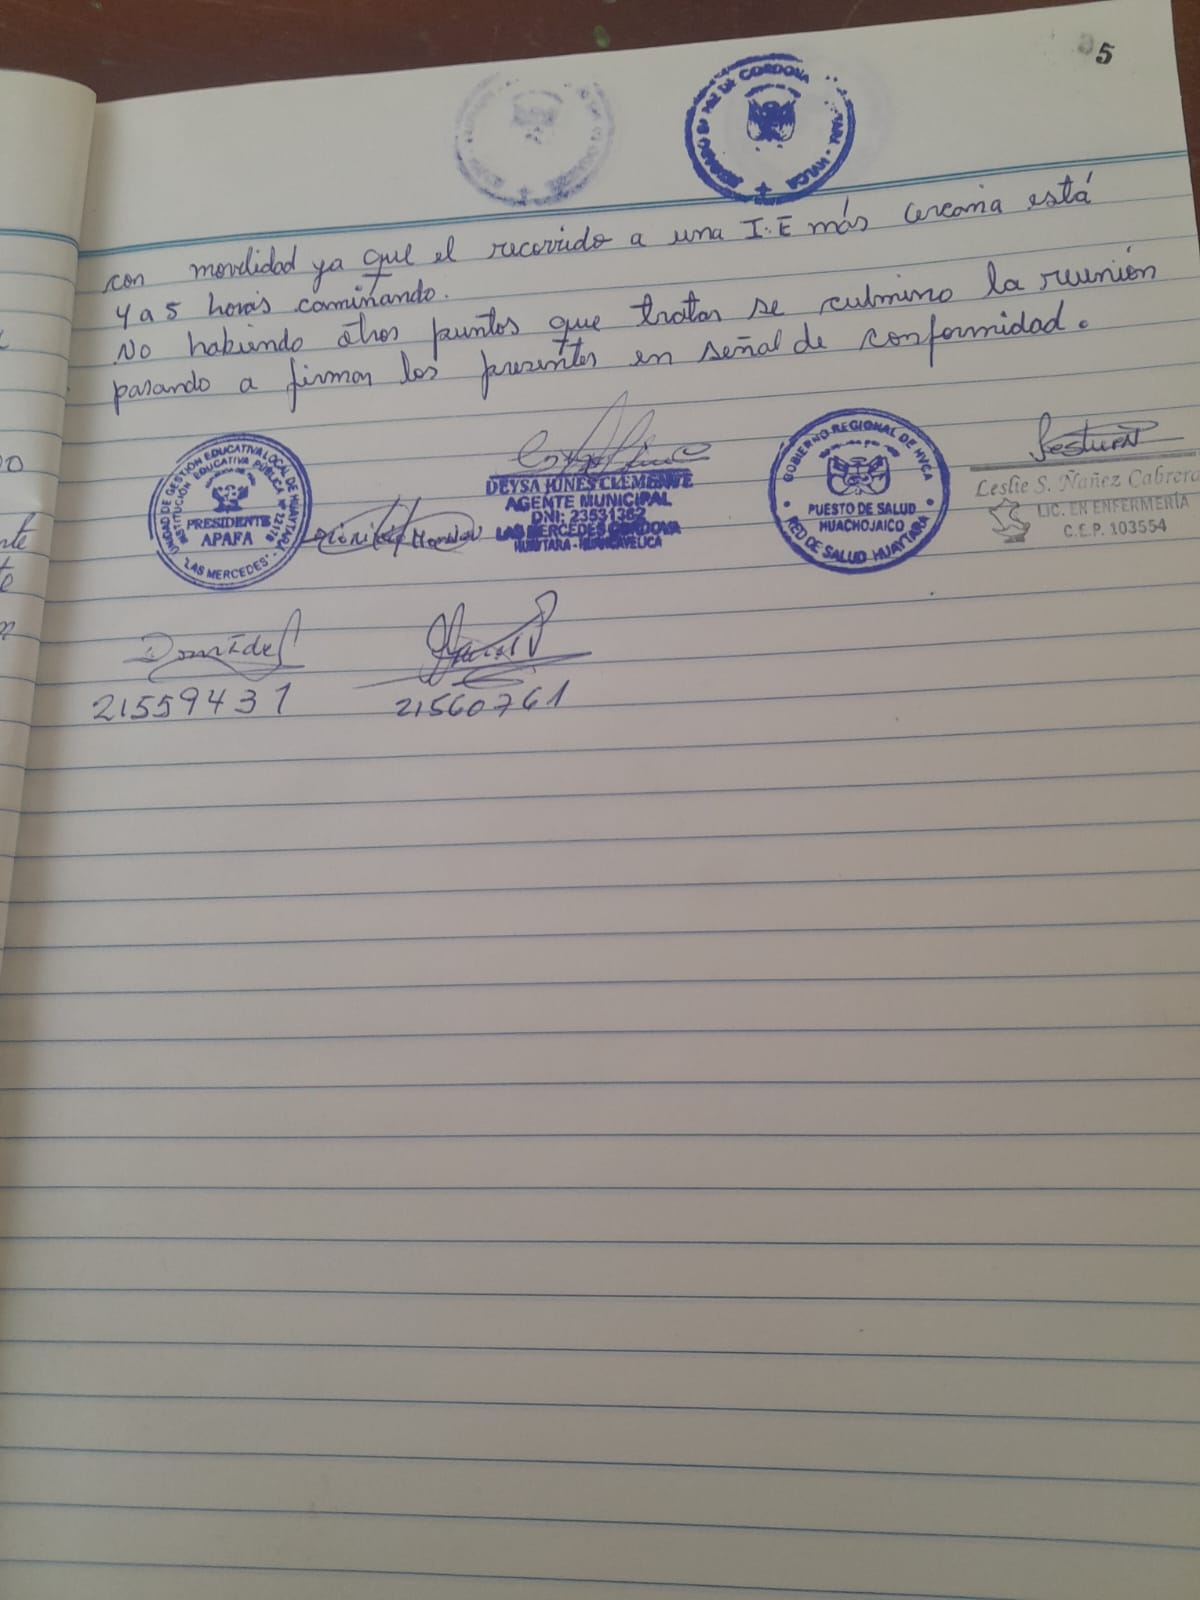 5
JUZGADO DE PAZ DE CORDOVA
HVCA
con movilidad ya que el recorrido a una I.E más cercana está
4 a 5 horas caminando.
No habiendo otros puntos que tratar se culmino la reunión
pasando a firmar los presentes en señal de conformidad.
UNIDAD DE GESTIÓN EDUCATIVA LOCAL DE HUAYTARÁ
INSTITUCIÓN EDUCATIVA PÚBLICA Nº 22178
PRESIDENTE
APAFA
"LAS MERCEDES"
DEYSA JUNES CLEMENTE
AGENTE MUNICIPAL
DNI: 23531362
LAS MERCEDES CORDOVA
HUAYTARA - HUANCAVELICA
GOBIERNO REGIONAL DE HVCA
PUESTO DE SALUD
HUACHOJAICO
RED DE SALUD HUAYTARA
Leslie S. Ñañez Cabrera
LIC. EN ENFERMERÍA
C.E.P. 103554
21559431
21560761